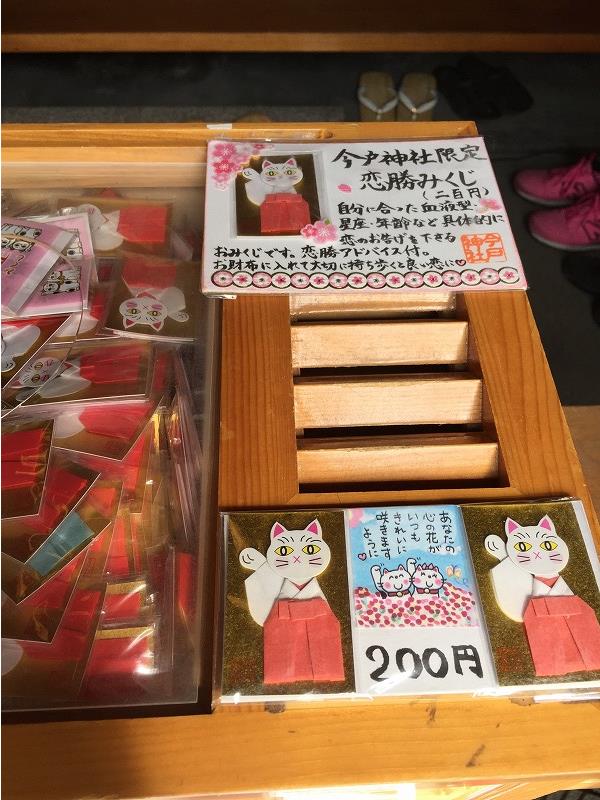 今戸神社限定
恋勝みくじ
(二百円)
自分に合った血液型・
星座・年齢など具体的に
恋のお告げを下さる
おみくじです。恋勝アドバイス付。
お財布に入れて大切に持ち歩くと良い恋に♡
今戸
神社
あなたの
心の花が
いつも
きれいに
咲きます
ように
200円